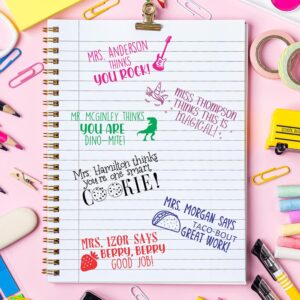 MRS. ANDERSON
THINKS
YOU ROCK!
MISS THOMPSON
THINKS THIS IS
MAGICAL!
MR. MCGINLEY THINKS
YOU ARE
DINO-MITE!
Mrs. Hamilton thinks
you're one smart
COOKIE!
MRS. MORGAN SAYS
TACO-BOUT
GREAT WORK!
MRS. IZOR SAYS
BERRY, BERRY
GOOD JOB!